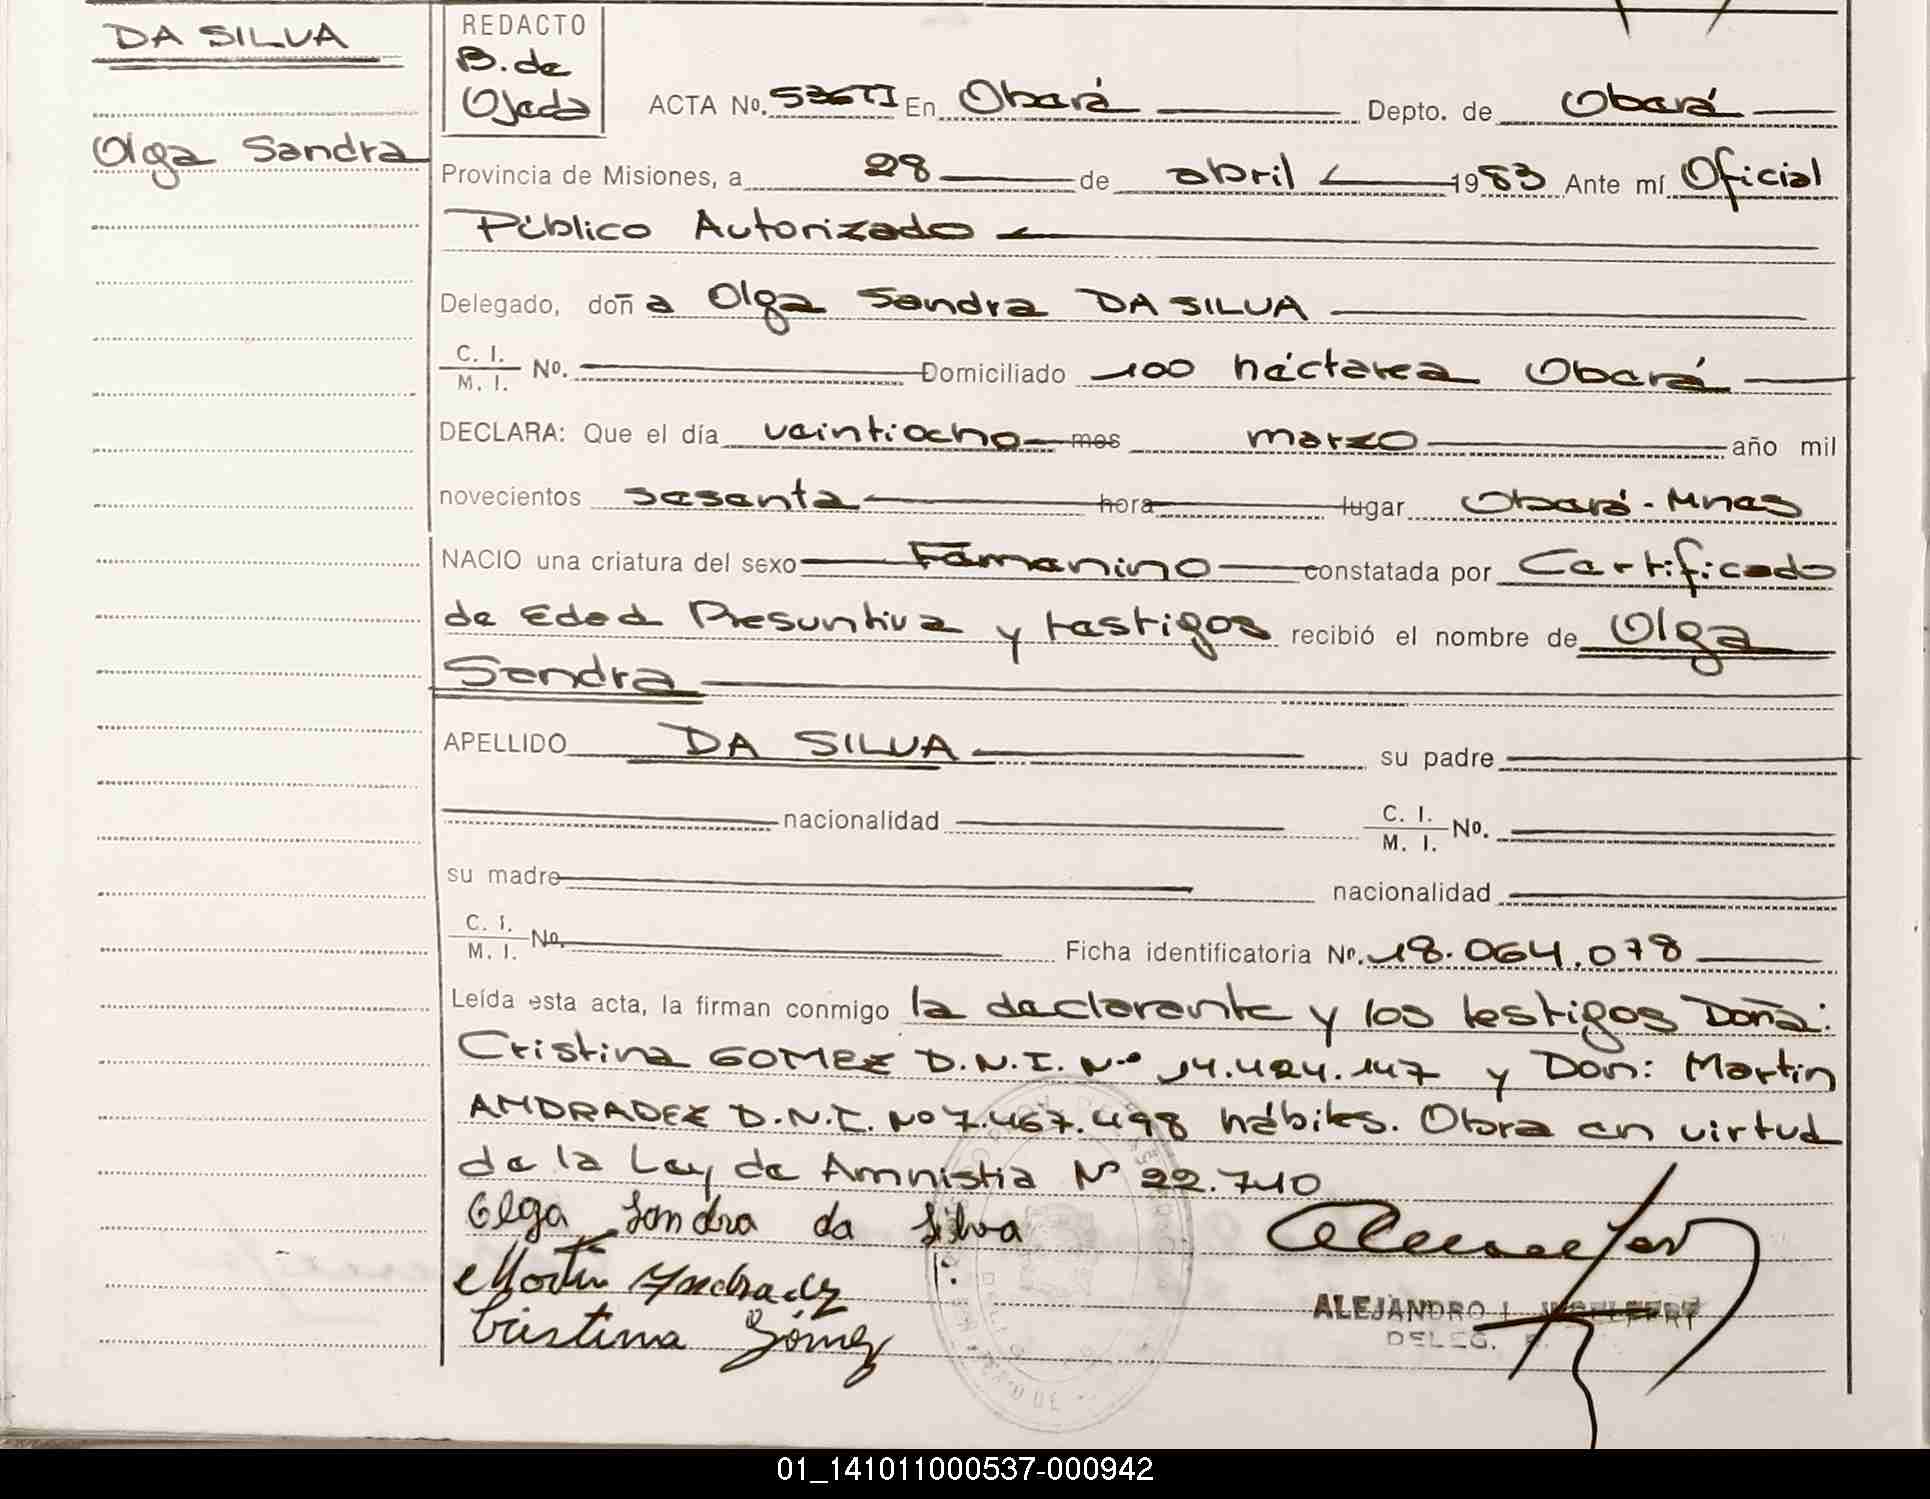 DA SILVA
Olga Sandra
REDACTO
B. de
Ojeda
ACTA No. 536TI En Oberá Depto. de Oberá
Provincia de Misiones, a 28 de abril 1983 Ante mí Oficial
Público Autorizado
Delegado, doñ a Olga Sandra DA SILVA
C. I. / M. I. No. Domiciliado 100 héctarea Oberá
DECLARA: Que el día veintiocho mes marzo año mil
novecientos sesenta hora lugar Oberá - Mnes
NACIO una criatura del sexo Femenino constatada por Certificado
de Edad Presuntiva y testigos recibió el nombre de Olga
Sandra
APELLIDO DA SILVA su padre
nacionalidad C. I. / M. I. No.
su madre nacionalidad
C. I. / M. I. No. Ficha identificatoria No. 18.064.078
Leída esta acta, la firman conmigo la declarante y los testigos Doña:
Cristina GOMEZ D.N.I. Nº 14.424.147 y Don: Martin
ANDRADEZ D.N.I. Nº 7.467.498 hábiles. Obra en virtud
de la Ley de Amnistia Nº 22.740
Olga Sandra da Silva
Martin Andradez
Cristina Gómez
ALEJANDRO
DELEG.
01_141011000537-000942